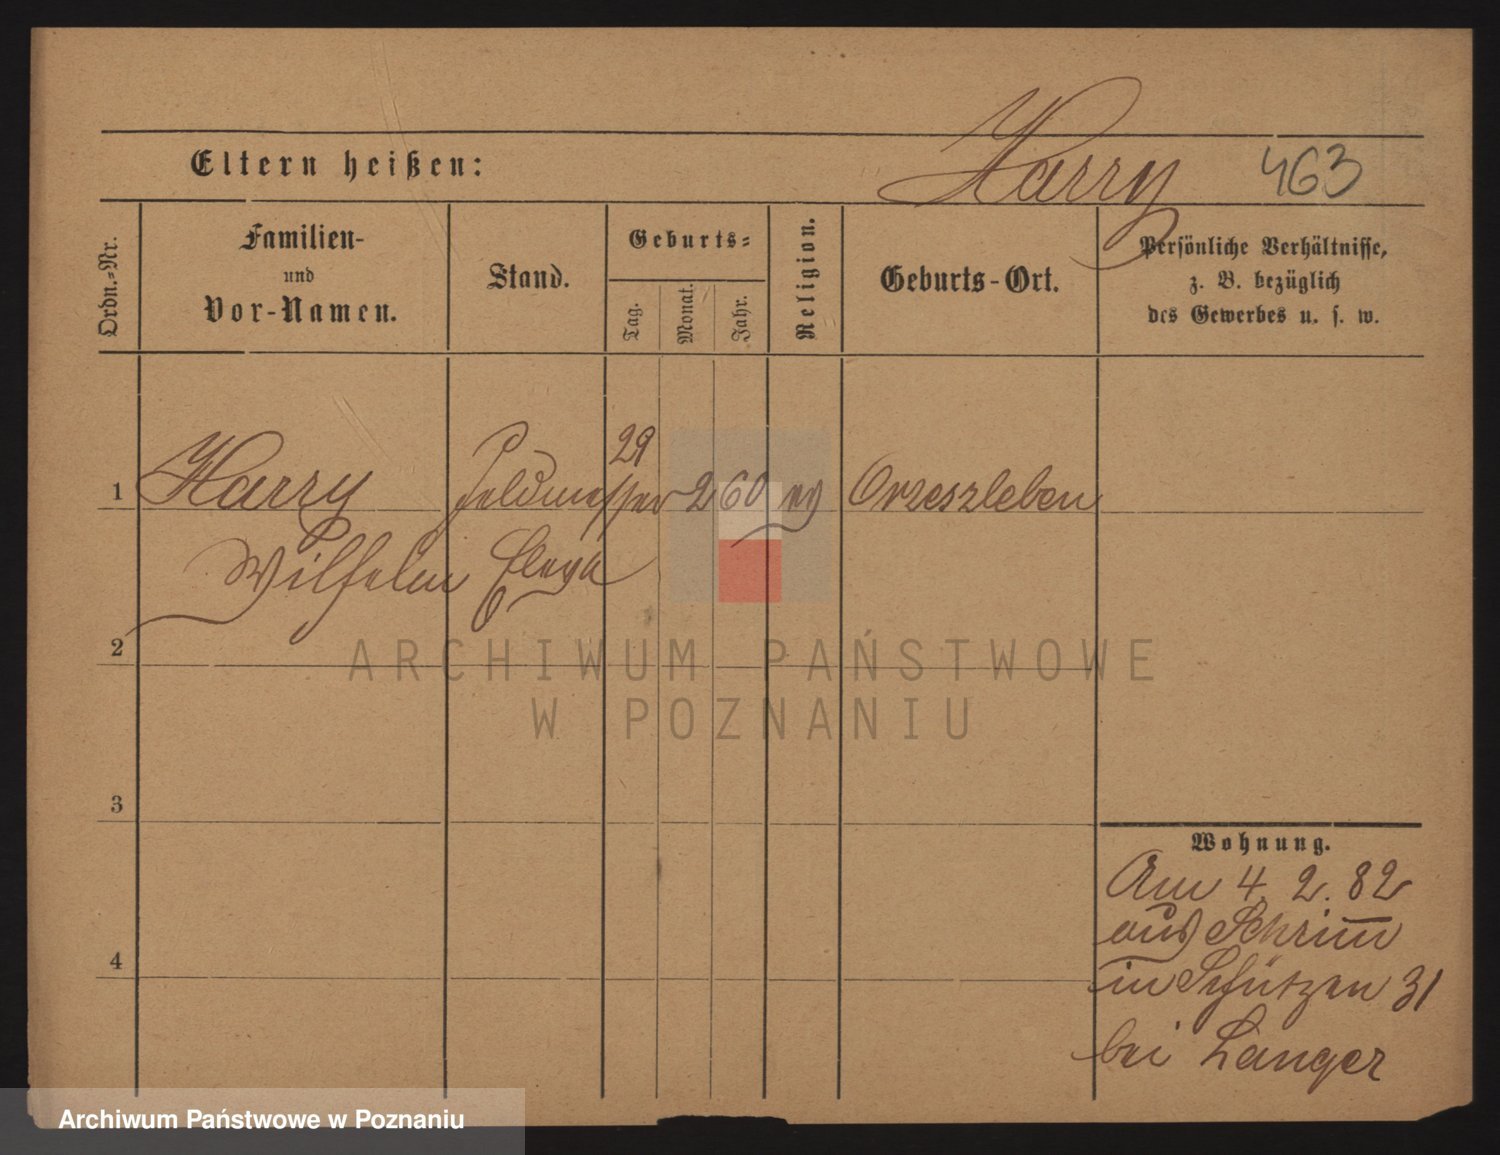 Harry 463
Eltern heißen:
Ordn.-Nr.
Familien-
und
Vor-Namen.
Stand.
Geburts-
Tag.
Monat.
Jahr.
Religion.
Geburts-Ort.
Persönliche Verhältnisse,
z. B. bezüglich
des Gewerbes u. s. w.
29
1 Harry Feldmesser 2 60 ev Orzeszleben
Wilhelm Eleve
2
ARCHIWUM PAŃSTWOWE
W POZNANIU
3
Wohnung.
Am 4. 2. 82
aus Schrimm
4
in Schützen 31
bei Langer
Archiwum Państwowe w Poznaniu